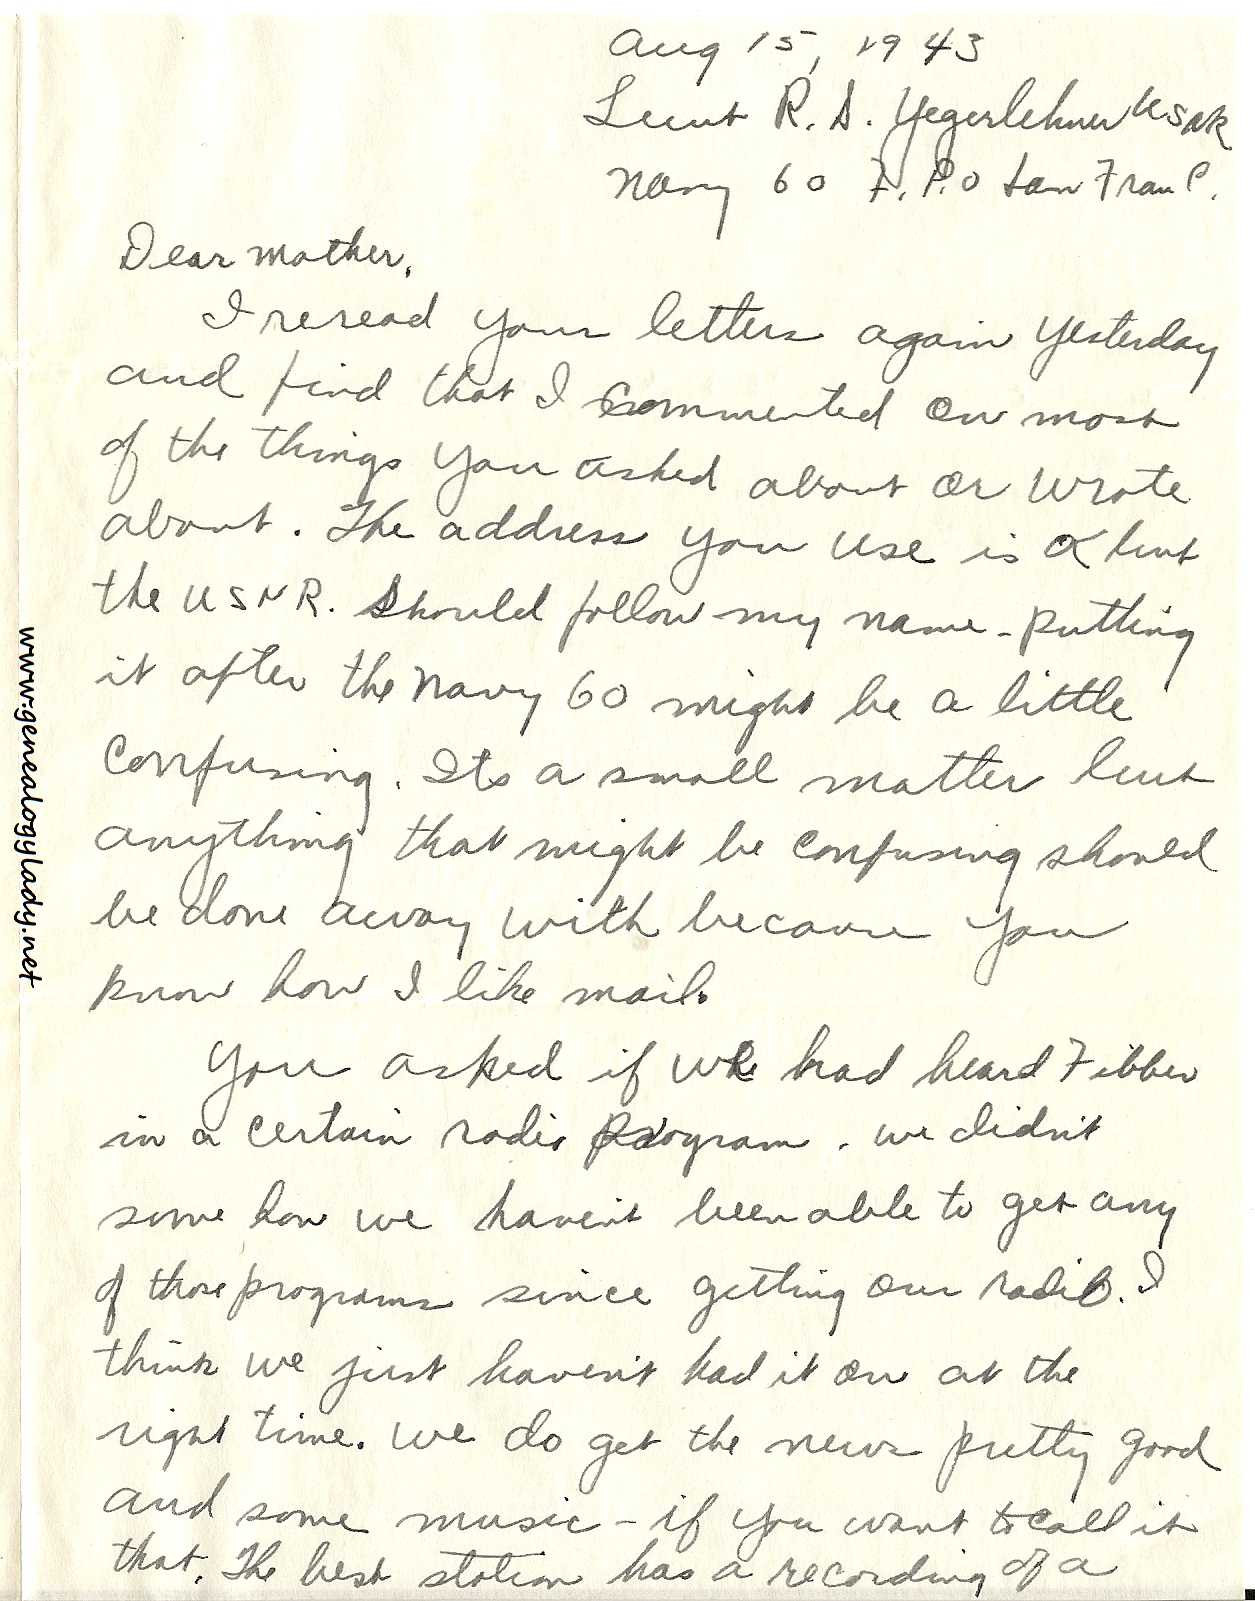 Aug 15, 1943
Lieut R. S. Yegerlehner USNR
Navy 60 F.P.O San Fran C.
Dear Mother,
I reread your letters again yesterday
and find that I commented on most
of the things you asked about or wrote
about. The address you use is OK but
the USNR. Should follow my name - putting
it after the Navy 60 might be a little
confusing. Its a small matter but
anything that might be confusing should
be done away with because you
know how I like mail.
You asked if we had heard Fibber
in a certain radio program. we didn't
some how we haven't been able to get any
of those programs since getting our radio. I
think we just haven't had it on at the
right time. we do get the news pretty good
and some music - if you want to call it
that. The best station has a recording of a
www.genealogylady.net